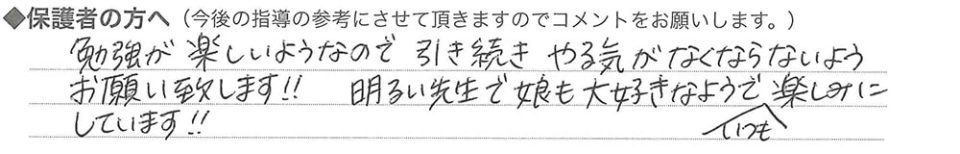 ◆保護者の方へ（今後の指導の参考にさせて頂きますのでコメントをお願いします。）
勉強が楽しいようなので 引き続き やる気がなくならないよう
お願い致します!! 明るい先生で娘も大好きなようでいつも楽しみに
しています!!